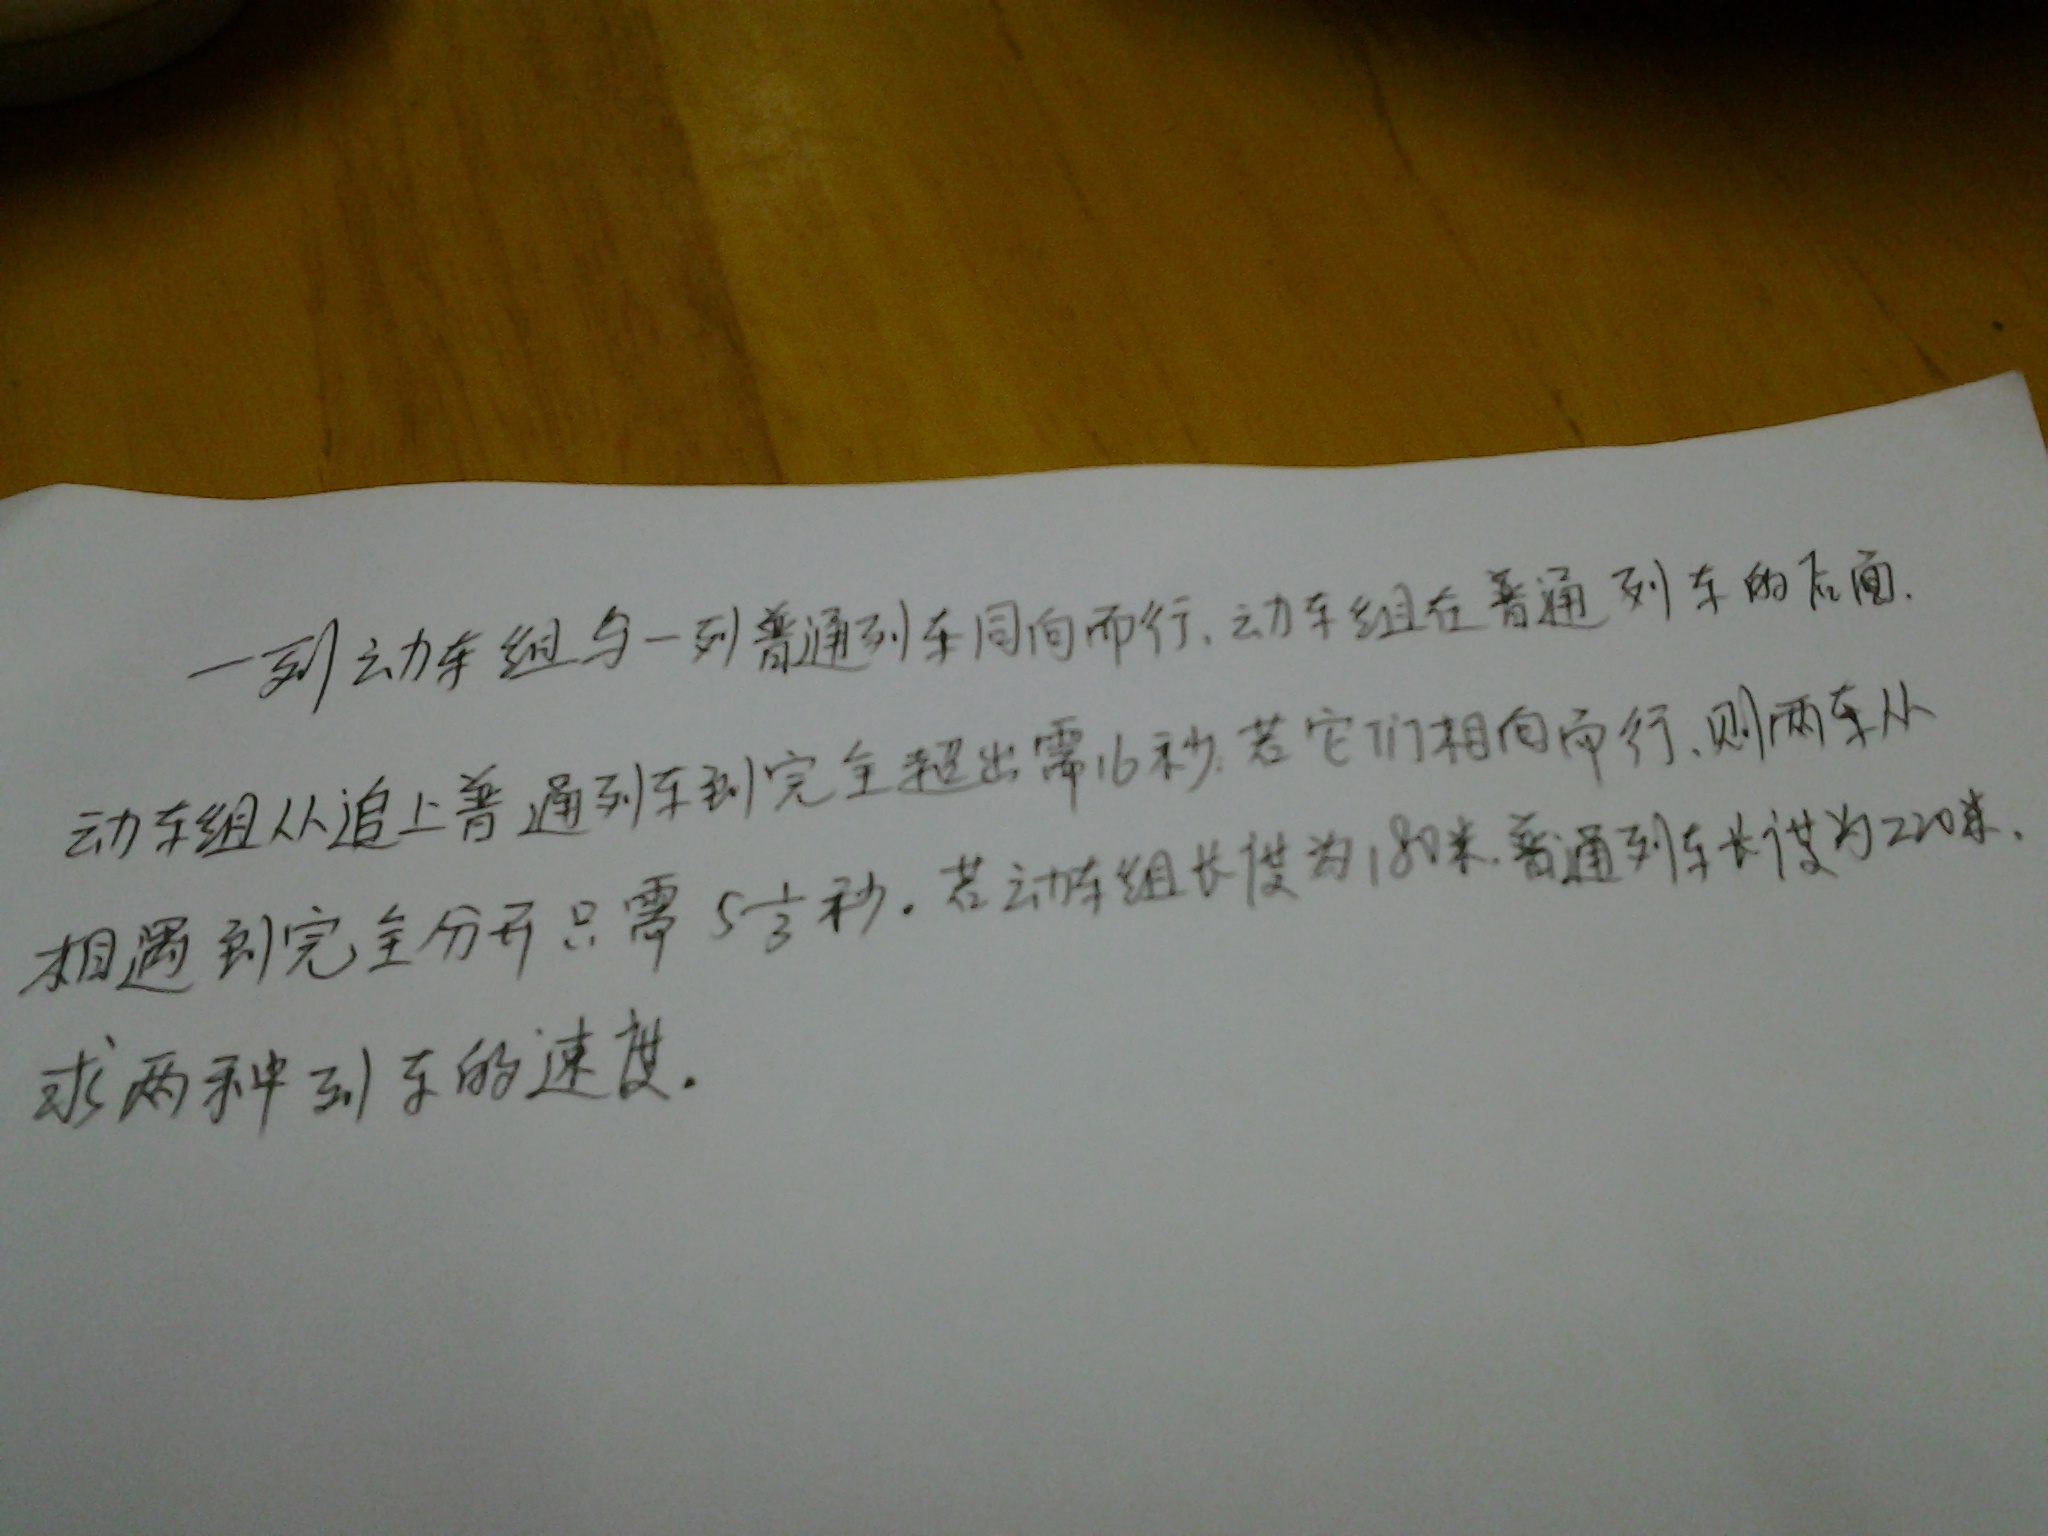 一列动车组与一列普通列车同向而行,动车组在普通列车的后面.
动车组从追上普通列车到完全超出需16秒.若它们相向而行,则两车从
相遇到完全分开只需5 1/3秒.若动车组长度为180米.普通列车长度为220米.
求两种列车的速度.